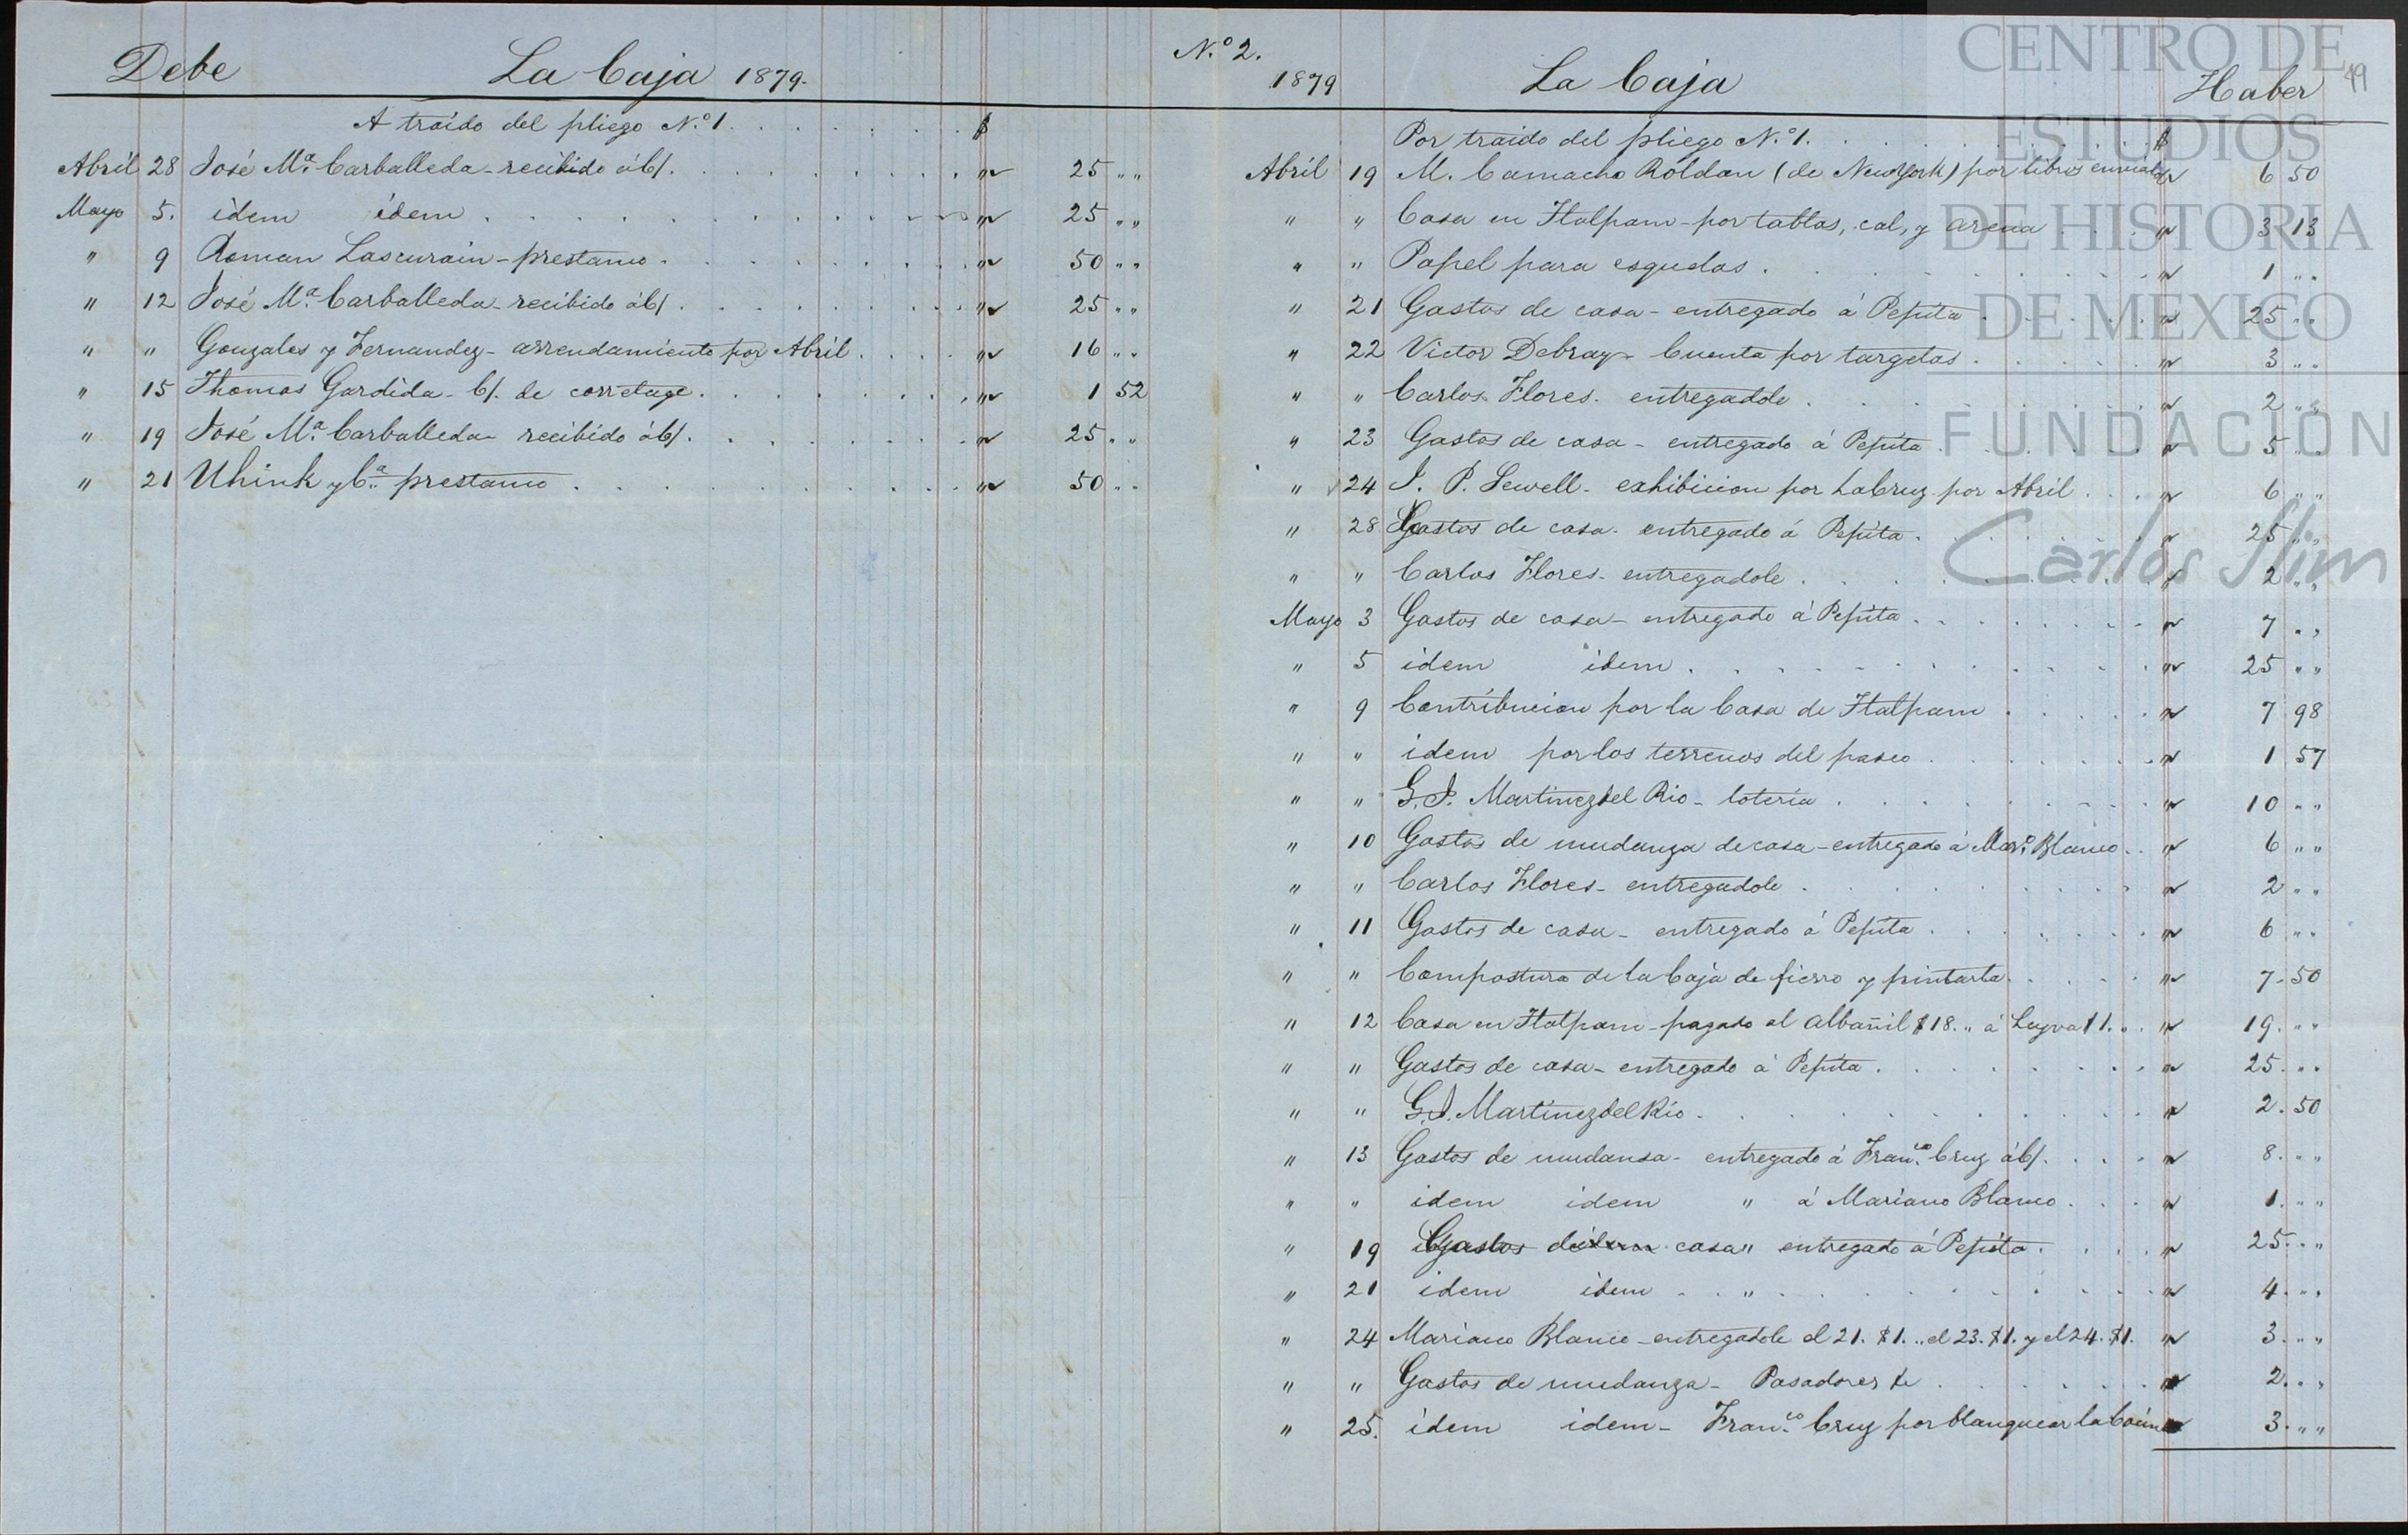 Debe La Caja 1879.
A traido del pliego N.º 1. $
Abril 28 José M.ª Carballeda - recibido á c/. " 25 " "
Mayo 5. idem idem " 25 " "
" 9 Roman Lascurain - prestamo " 50 " "
" 12 José M.ª Carballeda - recibido á c/ " 25 " "
" " Gonzales y Fernandez - arrendamiento por Abril " 16 " "
" 15 Thomas Gardida - C/. de corretage " 1 52
" 19 José M.ª Carballeda - recibido á c/. " 25 " "
" 21 Uhink y C.ª prestamo " 50 " "
N.º 2.
1879 La Caja Haber
49
Por traido del pliego N.º 1. $
Abril 19 M. Camacho Róldan (de New York) por libros enviados " 6 50
" " Casa en Tlalpam - por tablas, cal, y arena " 3 13
" " Papel para esquelas " 1 " "
" 21 Gastos de casa - entregado á Pepita " 25 " "
" 22 Victor Debray - Cuenta por targetas " 3 " "
" " Carlos Flores - entregadole " 2 " "
" 23 Gastos de casa - entregado á Pepita " 5 " "
" 24 J. P. Sewell - exhibicion por La Cruz por Abril " 6 " "
" 28 Gastos de casa - entregado á Pepita " 25 " "
" " Carlos Flores - entregadole " 2 " "
Mayo 3 Gastos de casa - entregado á Pepita " 7 " "
" 5 idem idem " 25 " "
" 9 Contribucion por la Casa de Tlalpam " 7 98
" " idem por los terrenos del paseo " 1 57
" " G. J. Martinez del Rio - loteria " 10 " "
" 10 Gastos de mudanza de casa - entregado á Mar.º Blanco " 6 " "
" " Carlos Flores - entregadole " 2 " "
" 11 Gastos de casa - entregado á Pepita " 6 " "
" " Compostura de la Caja de fierro y pintarla " 7 . 50
" 12 Casa en Tlalpam - pagado al albañil $ 18. " á Leyva $ 1. " 19 . " "
" " Gastos de casa - entregado á Pepita " 25 . " "
" " G. J. Martinez del Rio " 2 . 50
" 13 Gastos de mudansa - entregado á Fran.co Cruz á c/. " 8 . " "
" " idem idem " á Mariano Blanco " 1 . " "
" 19 Gastos de casa " entregado á Pepita " 25 . " "
" 21 idem idem " " 4 . " "
" 24 Mariano Blanco - entregadole el 21. $ 1. " el 23. $ 1. y el 24. $ 1. " 3 . " "
" " Gastos de mudanza - Pasadores &c " 2 . " "
" 25. idem idem - Fran.co Cruz por blanquear la Cocina " 3 . " "
CENTRO DE
ESTUDIOS
DE HISTORIA
DE MEXICO
FUNDACIÓN
Carlos Slim